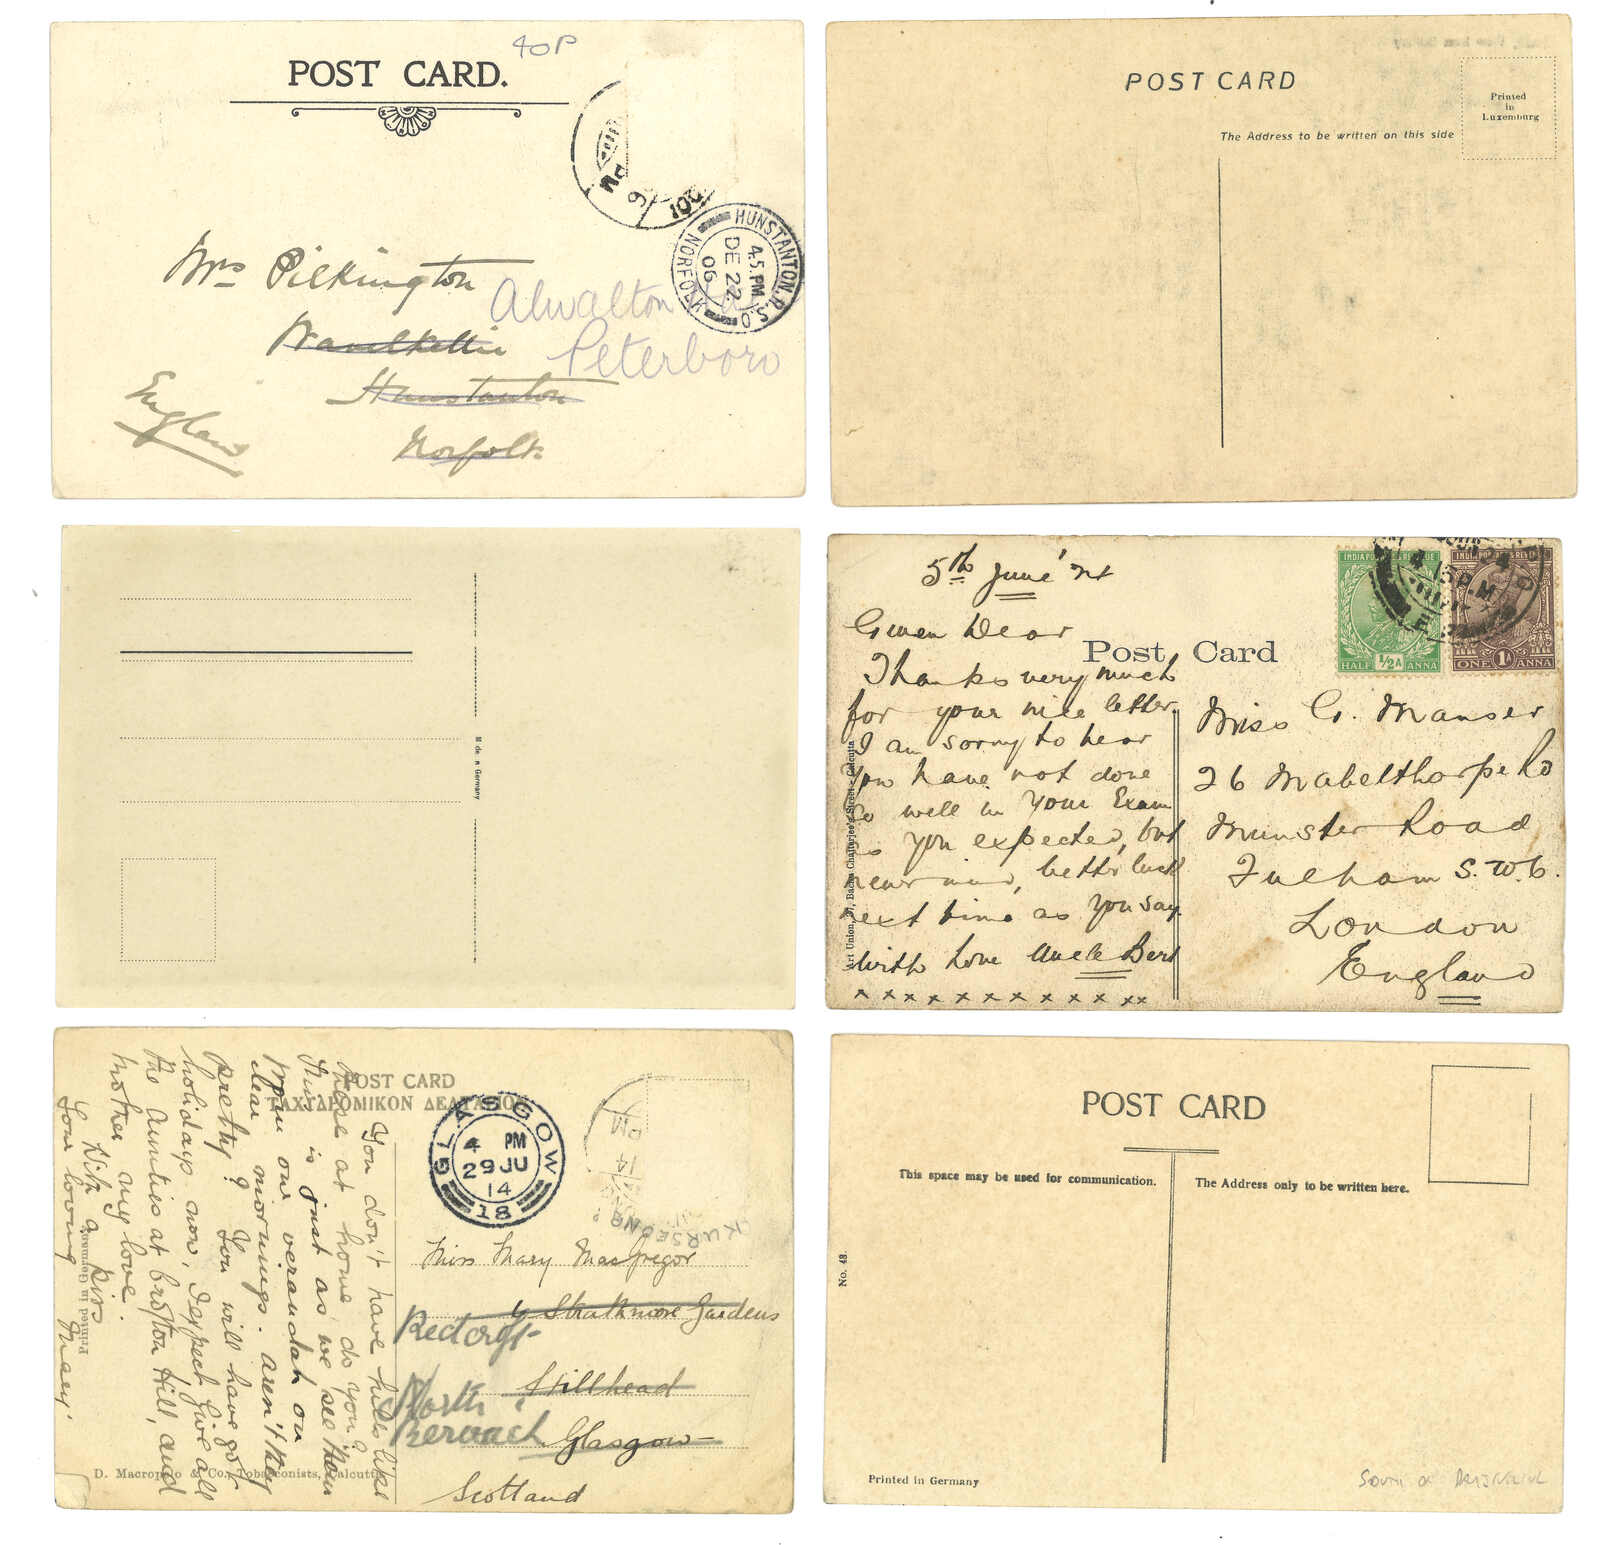 40P
POST CARD.
6 PM
HUNSTANTON.R.S.O
4.5.PM
DE 22
06
NORFOLK
Mrs Pilkington
Alwalton
Peterboro
Hunstanton
Norfolk
England
POST CARD
Printed
in
Luxemburg
The Address to be written on this side
Germany
5th June '24
Gwen Dear
Post Card
Thanks very much
for your nice letter.
I am sorry to hear
you have not done
so well in your Exam
as you expected, but
never mind, better luck
next time as you say.
With love Uncle Bert
x x x x x x x x x x x x x
Art Union, Calcutta
INDIA POSTAGE & REVENUE
HALF 1/2A ANNA
INDIA POSTAGE & REVENUE
ONE 1A ANNA
Miss G. Manser
26 Mabelthorpe Rd
Munster Road
Fulham S.W.6.
London
England
POST CARD
ΤΑΧΥΔΡΟΜΙΚΟΝ ΔΕΛΤΑΡΙΟΝ
You don't have hills like
these at home, do you?
This is just as we see them
from our verandah on
clear mornings. aren't they
pretty? You will have got
holidays now, I expect. Give all
the Aunties at Crofton Hill, and
Mother my love.
With a kiss
Your loving
Printed in Germany
D. Macropolo & Co., Tobacconists, Calcutta
GLASGOW
4 PM
29 JU
14
18
KURSEONG
PM
14
Miss Mary MacGregor
6 Strathmore Gardens
Rectory
Hillhead
North
Berwick
Glasgow
Scotland
POST CARD
This space may be used for communication.
The Address only to be written here.
No. 48.
Printed in Germany